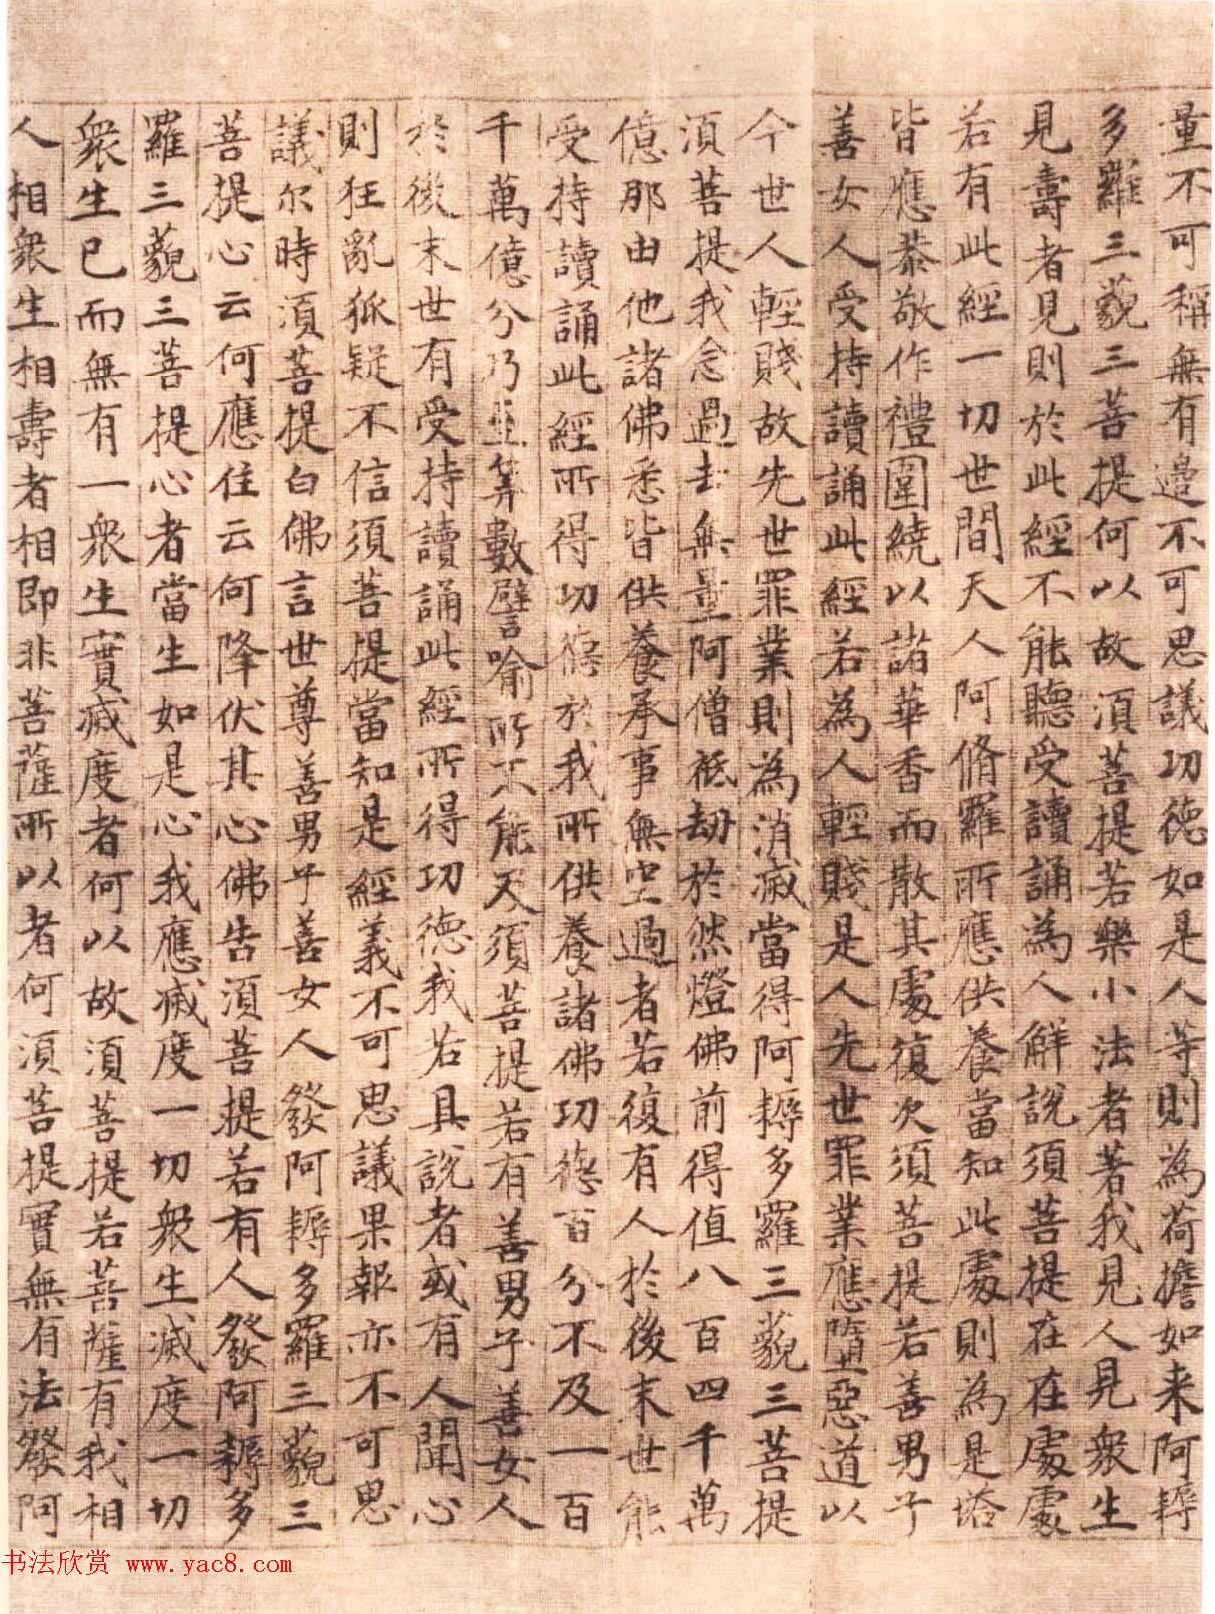 量不可稱無有邊不可思議功德如是人等則為荷擔如来阿耨
多羅三藐三菩提何以故湏菩提若樂小法者著我見人見衆生
見壽者見則於此經不能聽受讀誦為人解說須菩提在在處處
若有此經一切世間天人阿脩羅所應供養當知此處則為是塔
皆應恭敬作禮圍繞以諸華香而散其處復次須菩提若善男子
善女人受持讀誦此經若為人輕賤是人先世罪業應墮惡道以
今世人輕賤故先世罪業則為消滅當得阿耨多羅三藐三菩提
湏菩提我念過去無量阿僧祗劫於然燈佛前得值八百四千萬
億那由他諸佛悉皆供養承事無空過者若復有人於後末世能
受持讀誦此經所得功德於我所供養諸佛功德百分不及一百
千萬億分乃至筭數譬喻所不能及須菩提若有善男子善女人
於後末世有受持讀誦此經所得功德我若具說者或有人聞心
則狂亂狐疑不信須菩提當知是經義不可思議果報亦不可思
議尔時湏菩提白佛言世尊善男子善女人發阿耨多羅三藐三
菩提心云何應住云何降伏其心佛告湏菩提若有人發阿耨多
羅三藐三菩提心者當生如是心我應滅度一切衆生滅度一切
衆生已而無有一衆生實滅度者何以故湏菩提若菩薩有我相
人相衆生相壽者相即非菩薩所以者何湏菩提實無有法發阿
书法欣赏 www.yac8.com